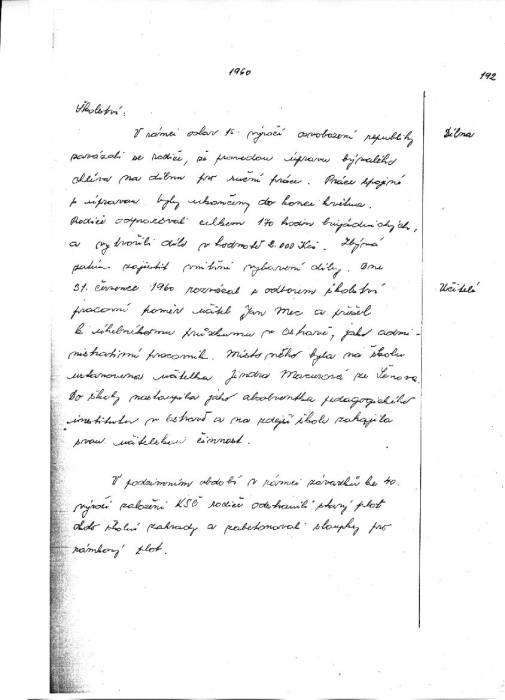 1960
192
Školství:
V rámci oslav 15. výročí osvobození republiky
Dílna
zavázali se rodiče, že provedou úpravu bývalého
chléva na dílnu pro ruční práce. Práce spojené
s úpravou byly ukončeny do konce května.
Rodiče odpracovali celkem 170 hodin brigádnických,
a vytvořili dílo v hodnotě 2.000 Kčs. Zbývá
zajistit vnitřní vybavení dílny. Dne
31. července 1960 rozvázal s odborem školství
Učitelé
pracovní poměr učitel Jan Mec a přešel
k uhelnému průzkumu v Ostravě, jako admi-
nistrativní pracovník. Místo něho byla na školu
ustanovena učitelka Jindra Macurová ze Šenova.
Do školy nastoupila jako absolventka pedagogického
institutu v Ostravě a na zdejší škole zahájila
svou učitelskou činnost.
V podzimním období v rámci závazků ke 40.
výročí založení KSČ rodiče odstranili starý plot
školní zahrady a zabetonovali sloupky pro
rámkový plot.